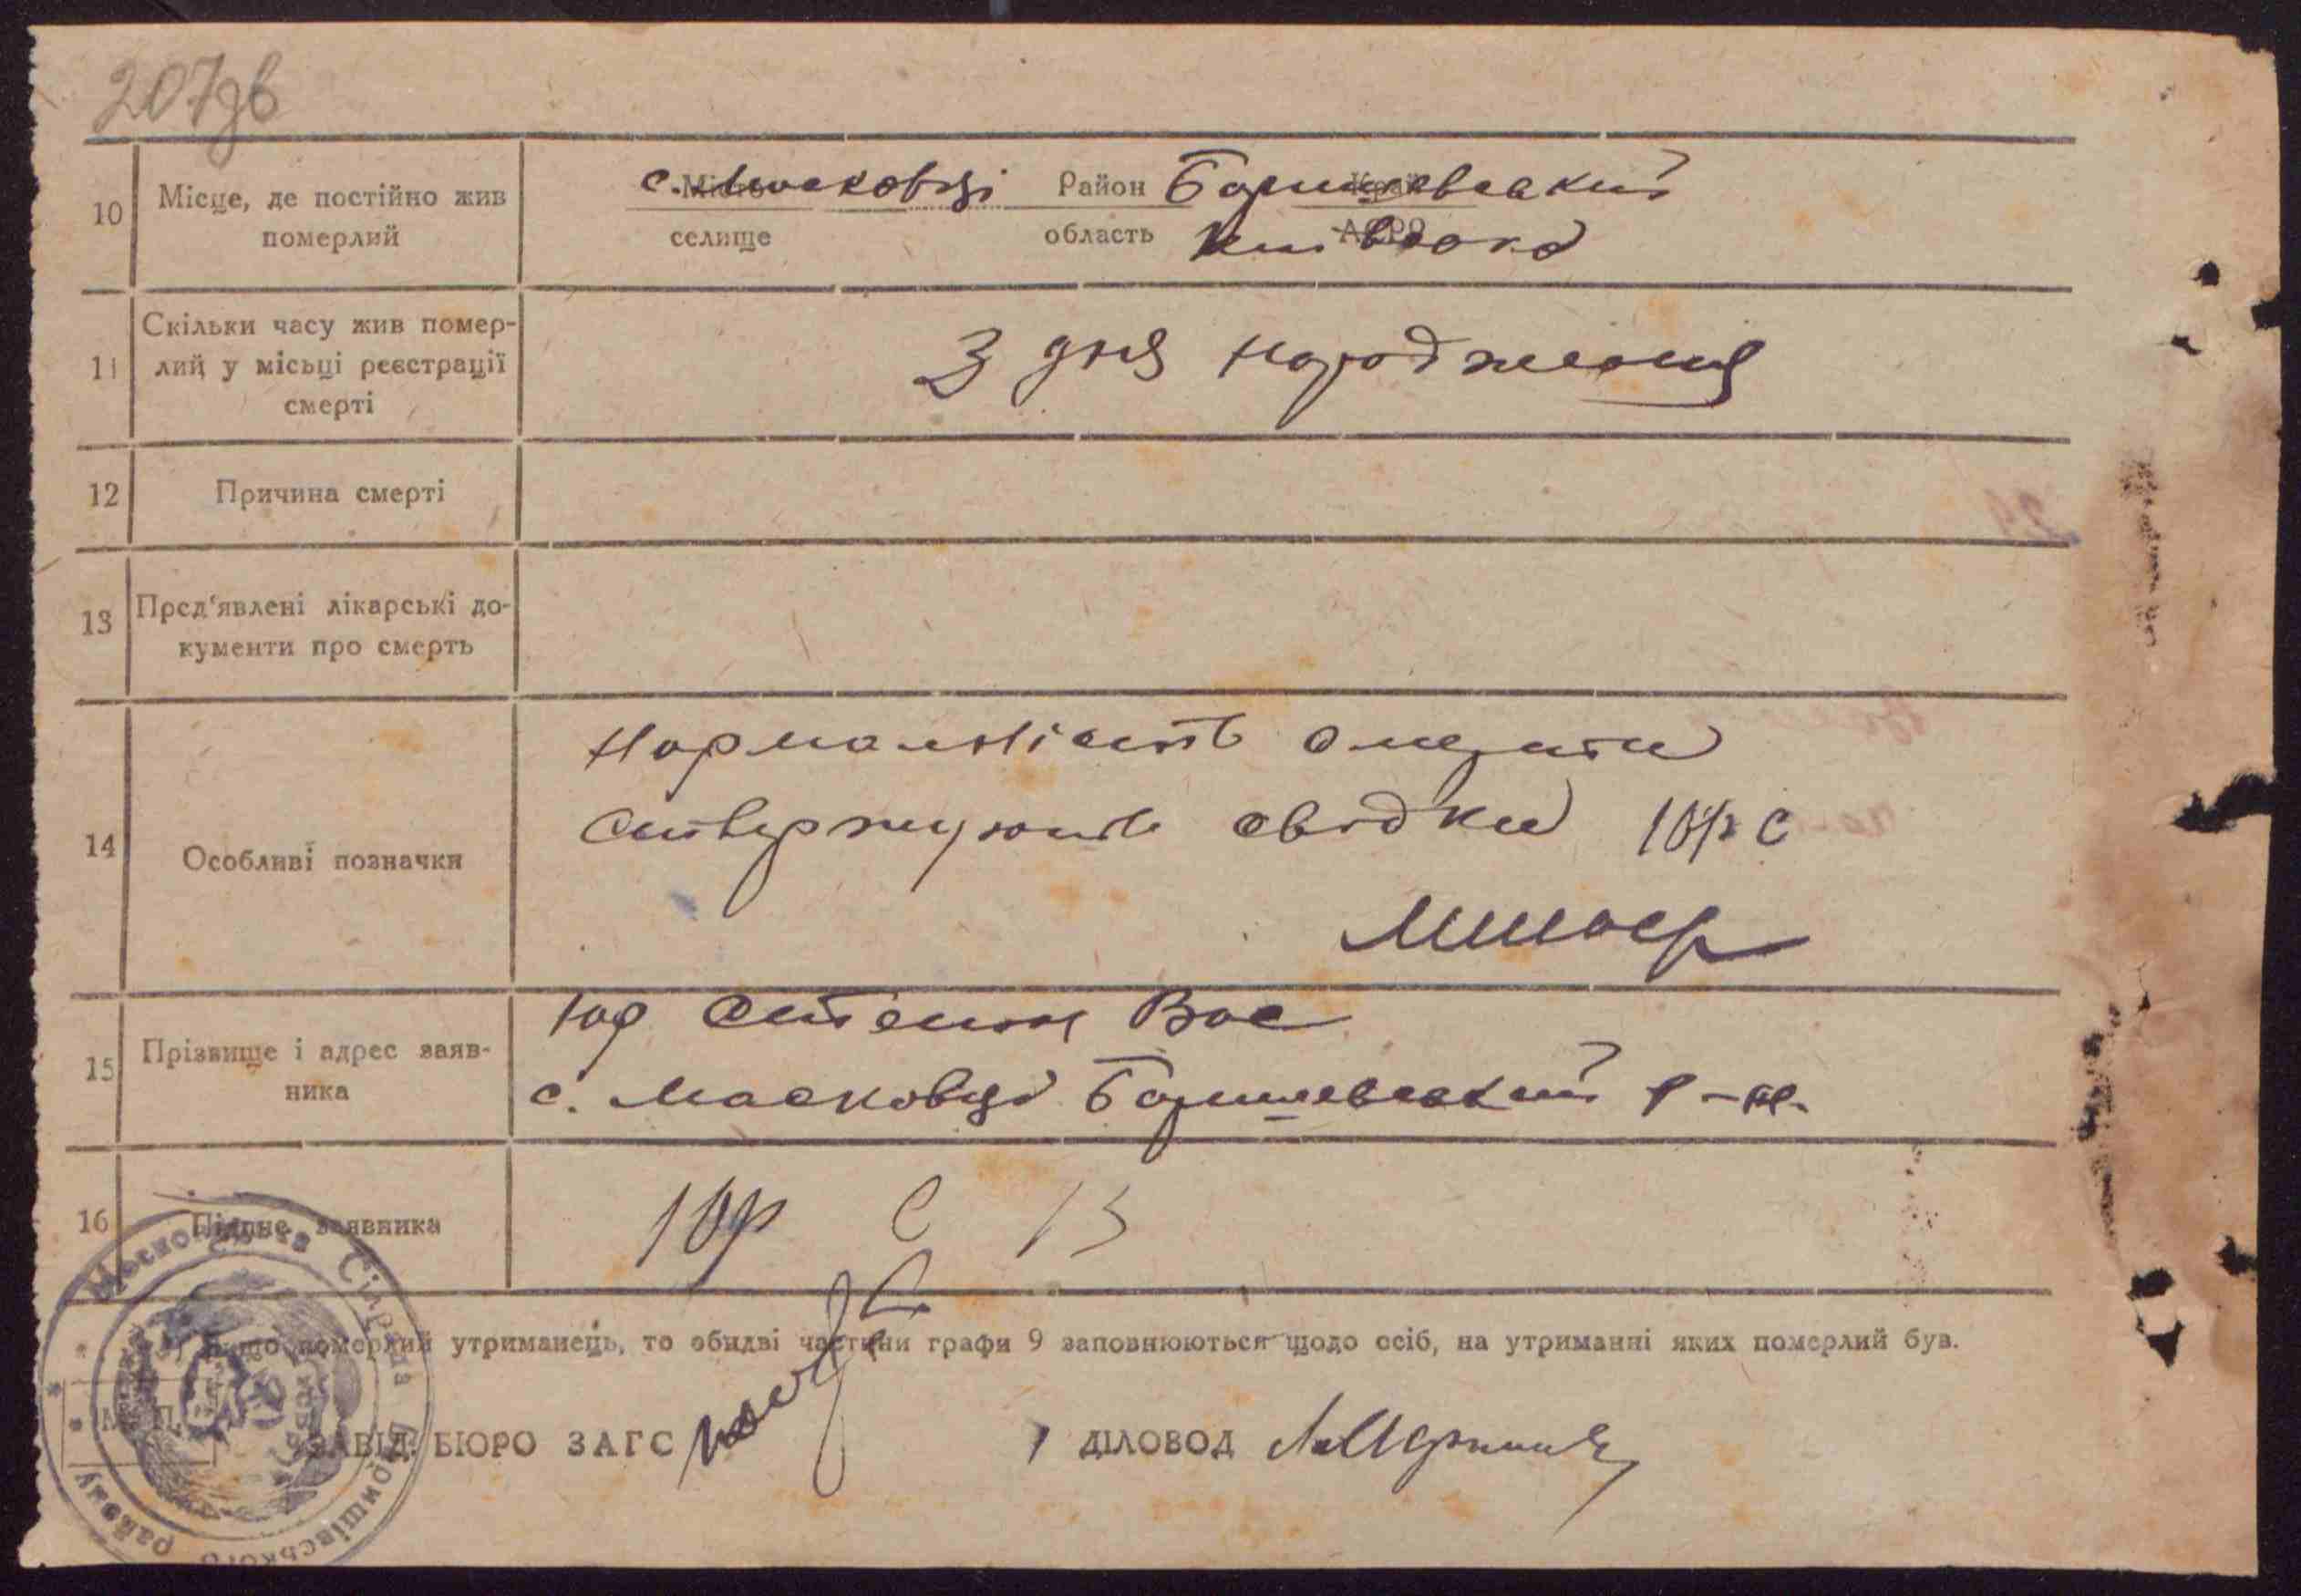 207зв
10 Місце, де постійно жив померлий
с. Масковці Район Баришевський
селище область Київська
11 Скільки часу жив помер-
лий у місьці реєстрації
смерті
З дня народження
12 Причина смерті
13 Пред'явлені лікарські до-
кументи про смерть
14 Особливі позначки
Нормальність смерти
ствержують свідки Юр С
15 Прізвище і адрес заяв-
ника
Юр Степан Вас
с. Масковці Баришевський р-н.
16 Підпис заявника
Юр С В
Якщо померлий утриманець, то обидві частини графи 9 заповнюються щодо осіб, на утриманні яких померлий був.
М. П.
ЗАВІД. БЮРО ЗАГС
ДІЛОВОД
Сільрада Баришівського району